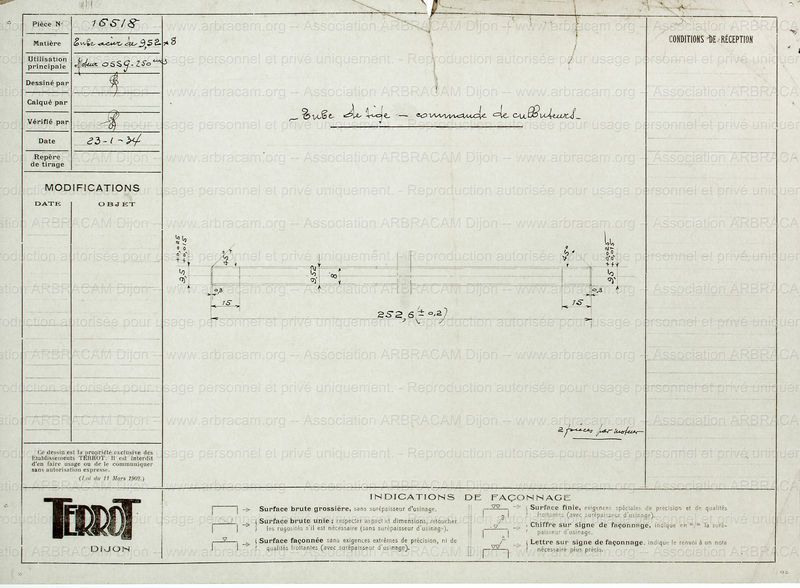 Pièce N° 16518
Matière Tube acier de 9,52 x 8
Utilisation principale Moteur OSSG-250 cm3
Dessiné par
Calqué par
Vérifié par
Date 23-1-34
Repère de tirage
MODIFICATIONS
DATE OBJET
CONDITIONS DE RÉCEPTION
- Tube de tige - commande de culbuteurs -
9,5 +0,025 +0,015
45°
9,52
8
45°
9,5 +0,025 +0,015
0,3
0,3
15
15
252,6 (± 0,2)
2 pièces par moteur
Ce dessin est la propriété exclusive des
Établissements TERROT. Il est interdit
d'en faire usage ou de le communiquer
sans autorisation expresse.
(Loi du 11 Mars 1902.)
TERROT
DIJON
INDICATIONS DE FAÇONNAGE
Surface brute grossière, sans surépaisseur d'usinage.
Surface brute unie ; respecter aspect et dimensions, retoucher
les rugosités s'il est nécessaire (sans surépaisseur d'usinage).
Surface façonnée sans exigences extrêmes de précision, ni de
qualités frottantes (avec surépaisseur d'usinage).
Surface finie, exigences spéciales de précision et de qualités
frottantes (avec surépaisseur d'usinage).
Chiffre sur signe de façonnage, indique en m/m la surépaisseur
d'usinage.
Lettre sur signe de façonnage, indique le renvoi à un nota
nécessaire plus précis.
www.arbracam.org -- Association ARBRACAM Dijon -- www.arbracam.org -- Association ARBRACAM Dijon
Reproduction autorisée pour usage personnel et privé uniquement. - Reproduction autorisée pour usage personnel et privé uniquement.